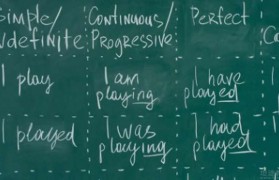 Simple/ Continuous/ Perfect
Indefinite Progressive
I play I am playing I have played
I played I was playing I had played